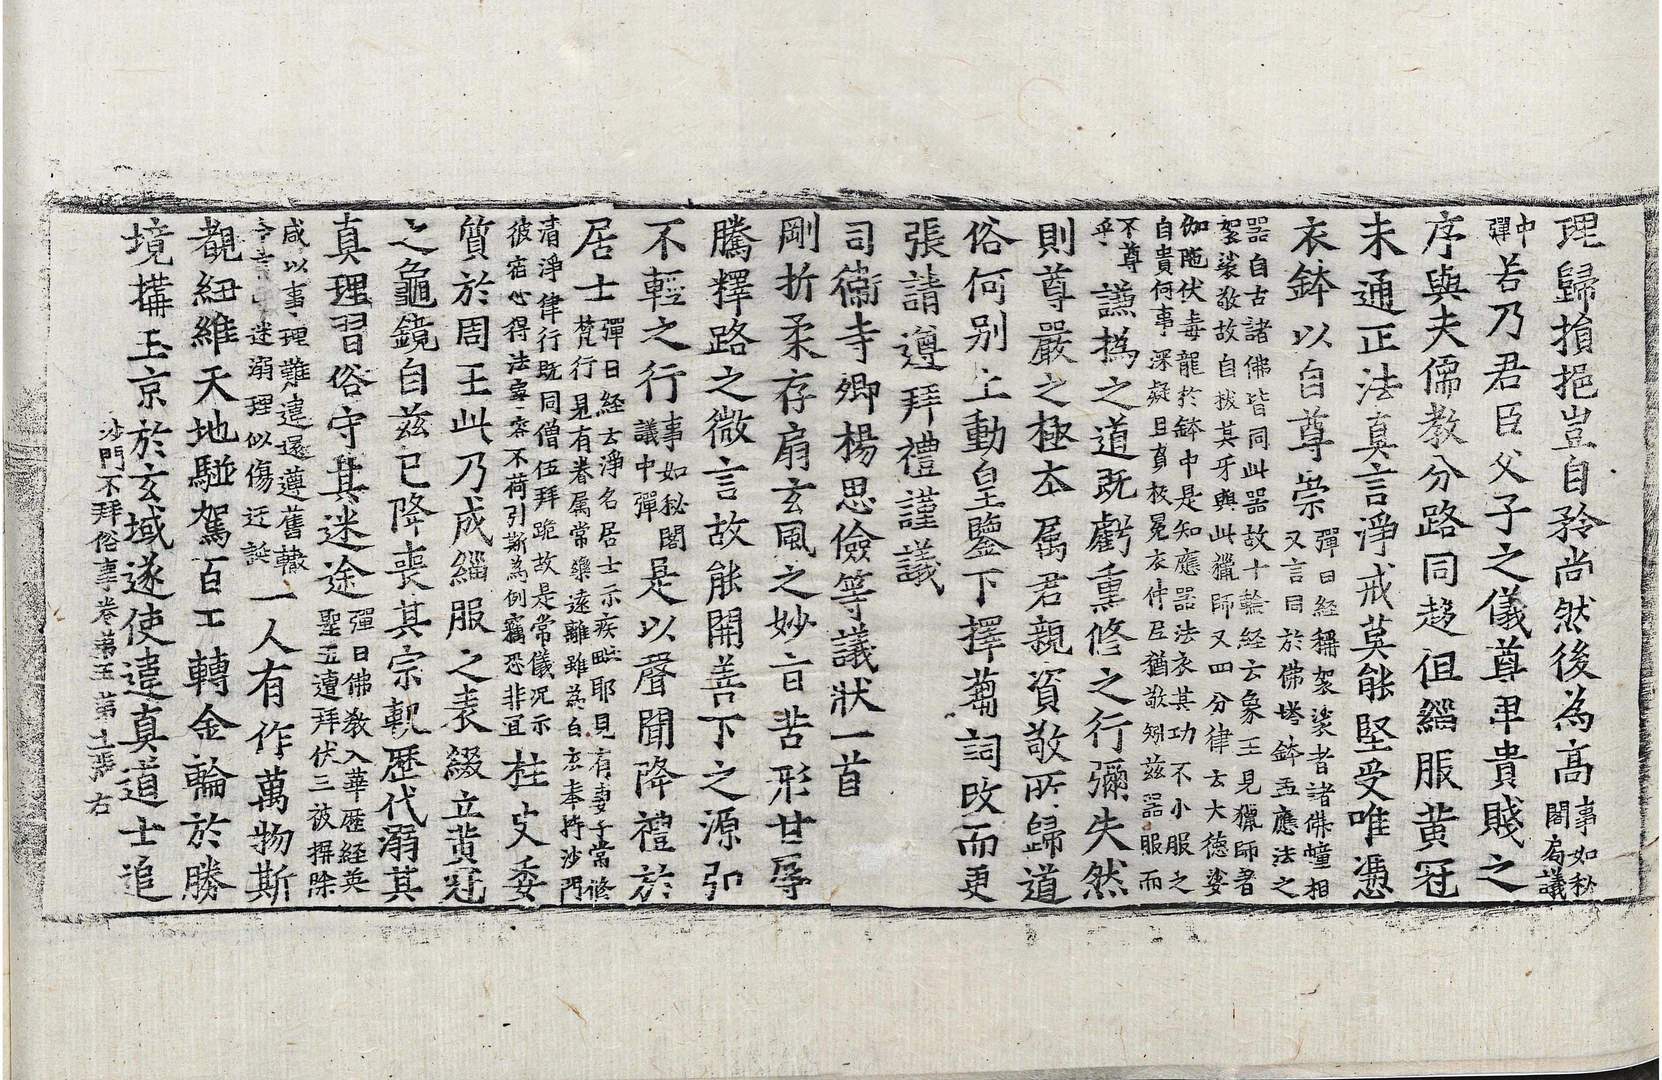 理歸損挹豈自矜尚然後為高事如秘閣局議
中彈若乃君臣父子之儀尊卑貴賤之
序與夫儒教分路同趍但緇服黄冠
未通正法真言淨戒莫能堅受唯憑
衣鉢以自尊崇彈曰經稱袈裟者諸佛幢相又言同於佛塔鉢盂應法之
器自古諸佛皆同此器故十輪經云象王見獵師著袈裟敬故自拔其牙與此獵師又四分律云大德婆
伽陁伏毒龍於鉢中是知應器法衣其功不小服之自貴何事深疑且負扆冕衣仲尼猶敬矧兹器服而
不尊乎謙撝之道既虧熏修之行彌失然
則尊嚴之極本属君親資敬所歸道
俗何别上動皇鑒下擇蒭詞改而更
張請遵拜禮謹議
司衞寺卿楊思儉等議狀一首
剛折柔存扇玄風之妙旨苦形甘辱
騰釋路之微言故能開善下之源弘
不輕之行事如秘閣議中彈是以聲聞降禮於
居士彈曰經云淨名居士示疾毗耶見有妻子常修梵行見有眷属常樂遠離雖為白衣奉持沙門
清淨律行既同僧伍拜跪故是常儀况示彼宿心得法寧容不荷引斯為例竊恐非冝柱史委
質於周王此乃成緇服之表綴立黄冠
之龜鏡自兹已降喪其宗軌歷代溺其
真理習俗守其迷途彈曰佛教入華歷經英聖五遭拜伏三被撰除
咸以事理難違還遵舊轍今言迷溺理似傷迂誕一人有作萬物斯
覩紐維天地駈駕百工轉金輪於勝
境搆玉京於玄域遂使違真道士追
沙門不拜俗事卷第五第土張右